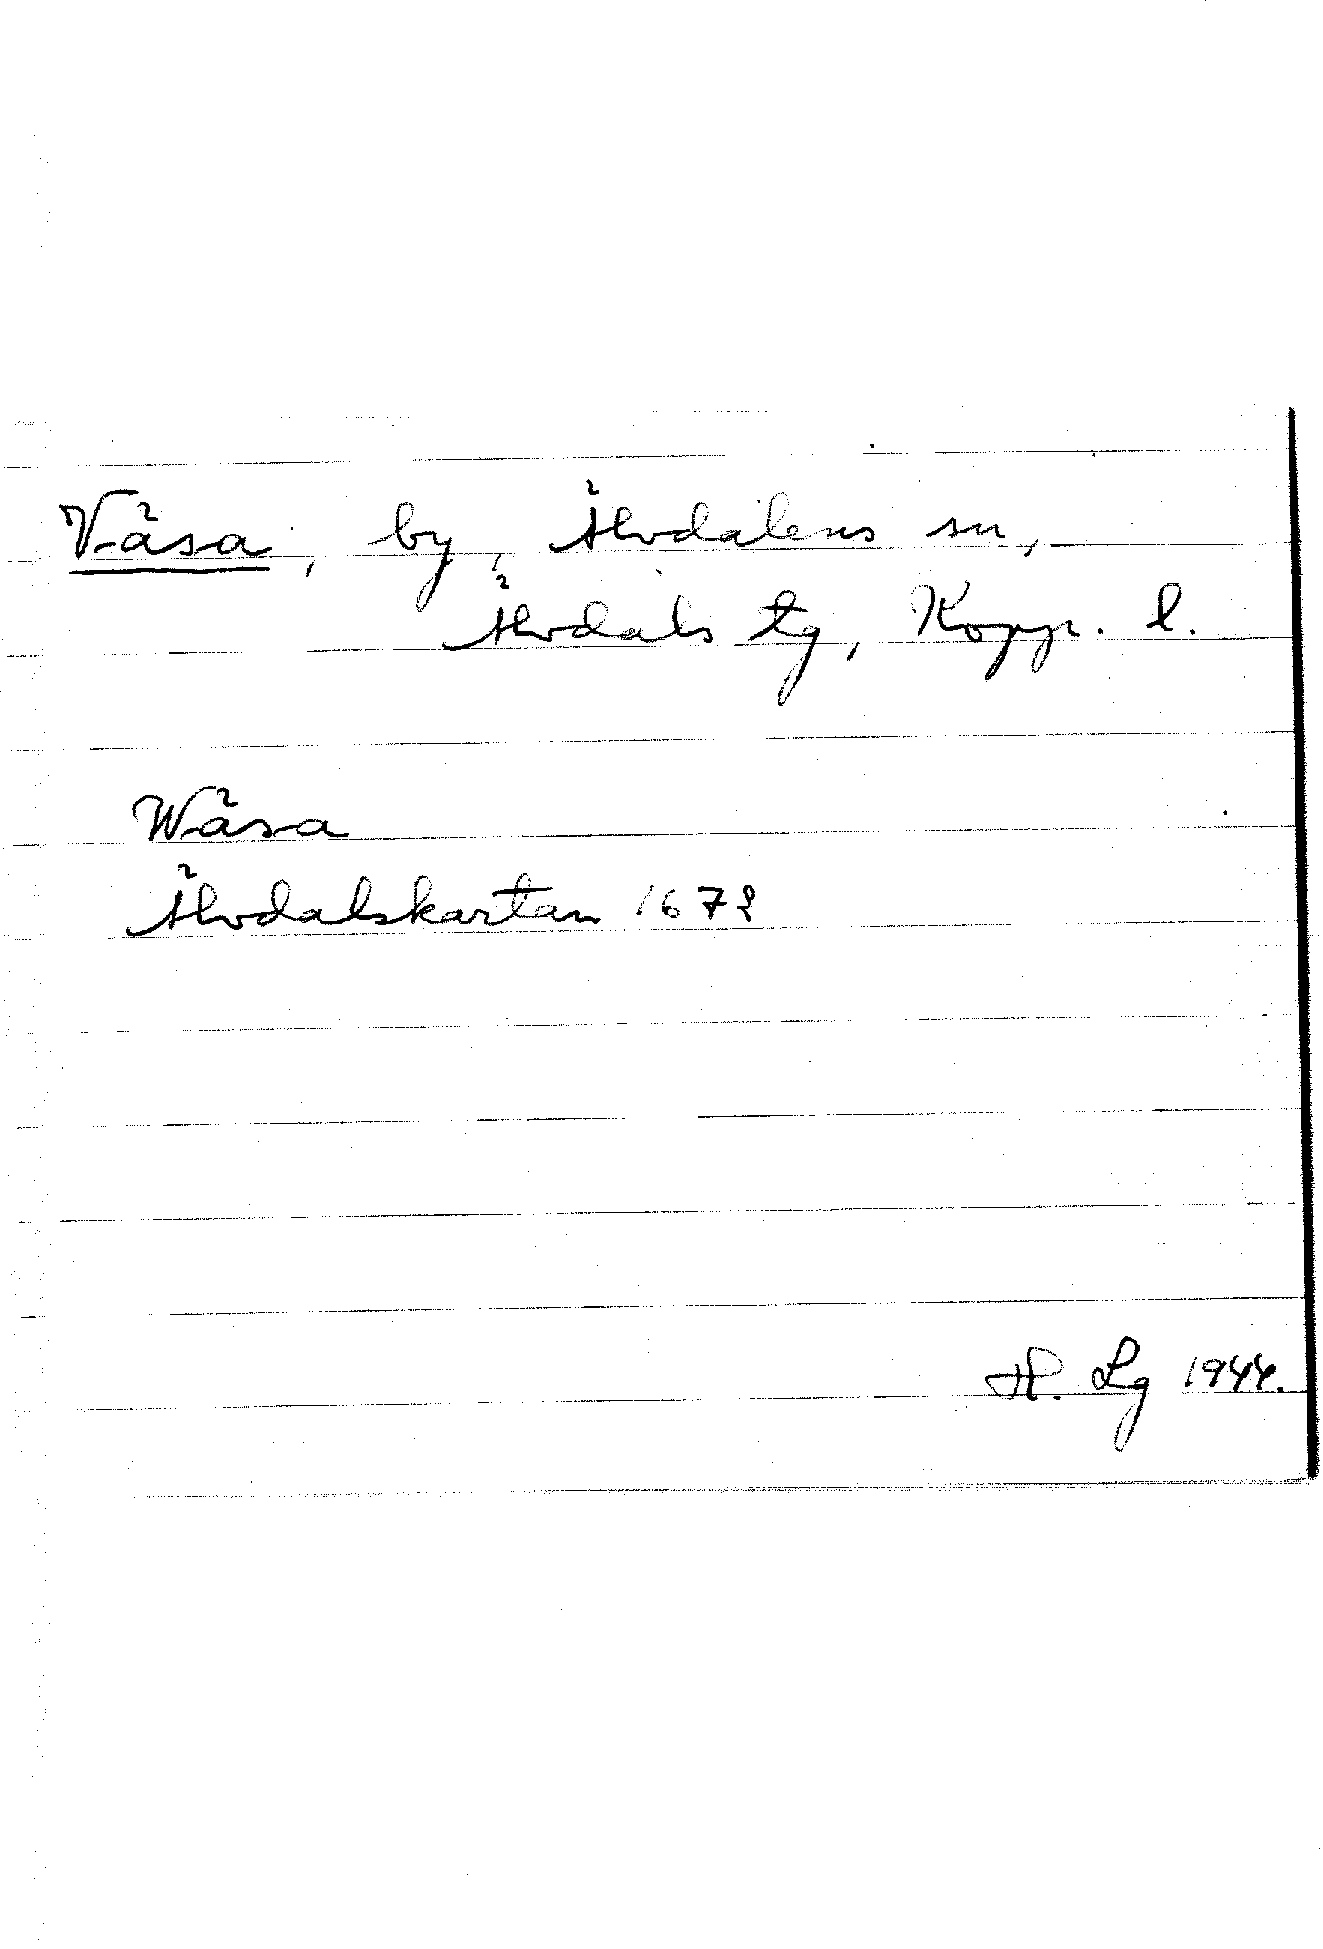 Väsa, by, Älvdalens sn,
Älvdals tg, Kopp. l.
Wäsa
Älvdalskartan 1672
H. Lg 1944.